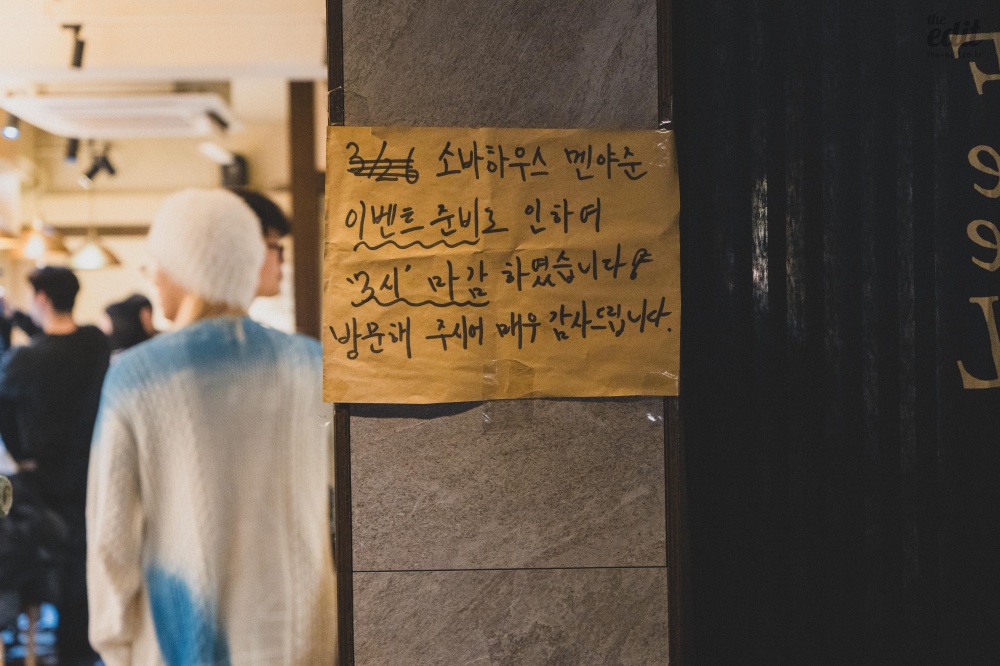 3/26 소바하우스 멘야준
이벤트 준비로 인하여
'3시' 마감 하였습니다
방문해 주시어 매우 감사드립니다.
the
edit